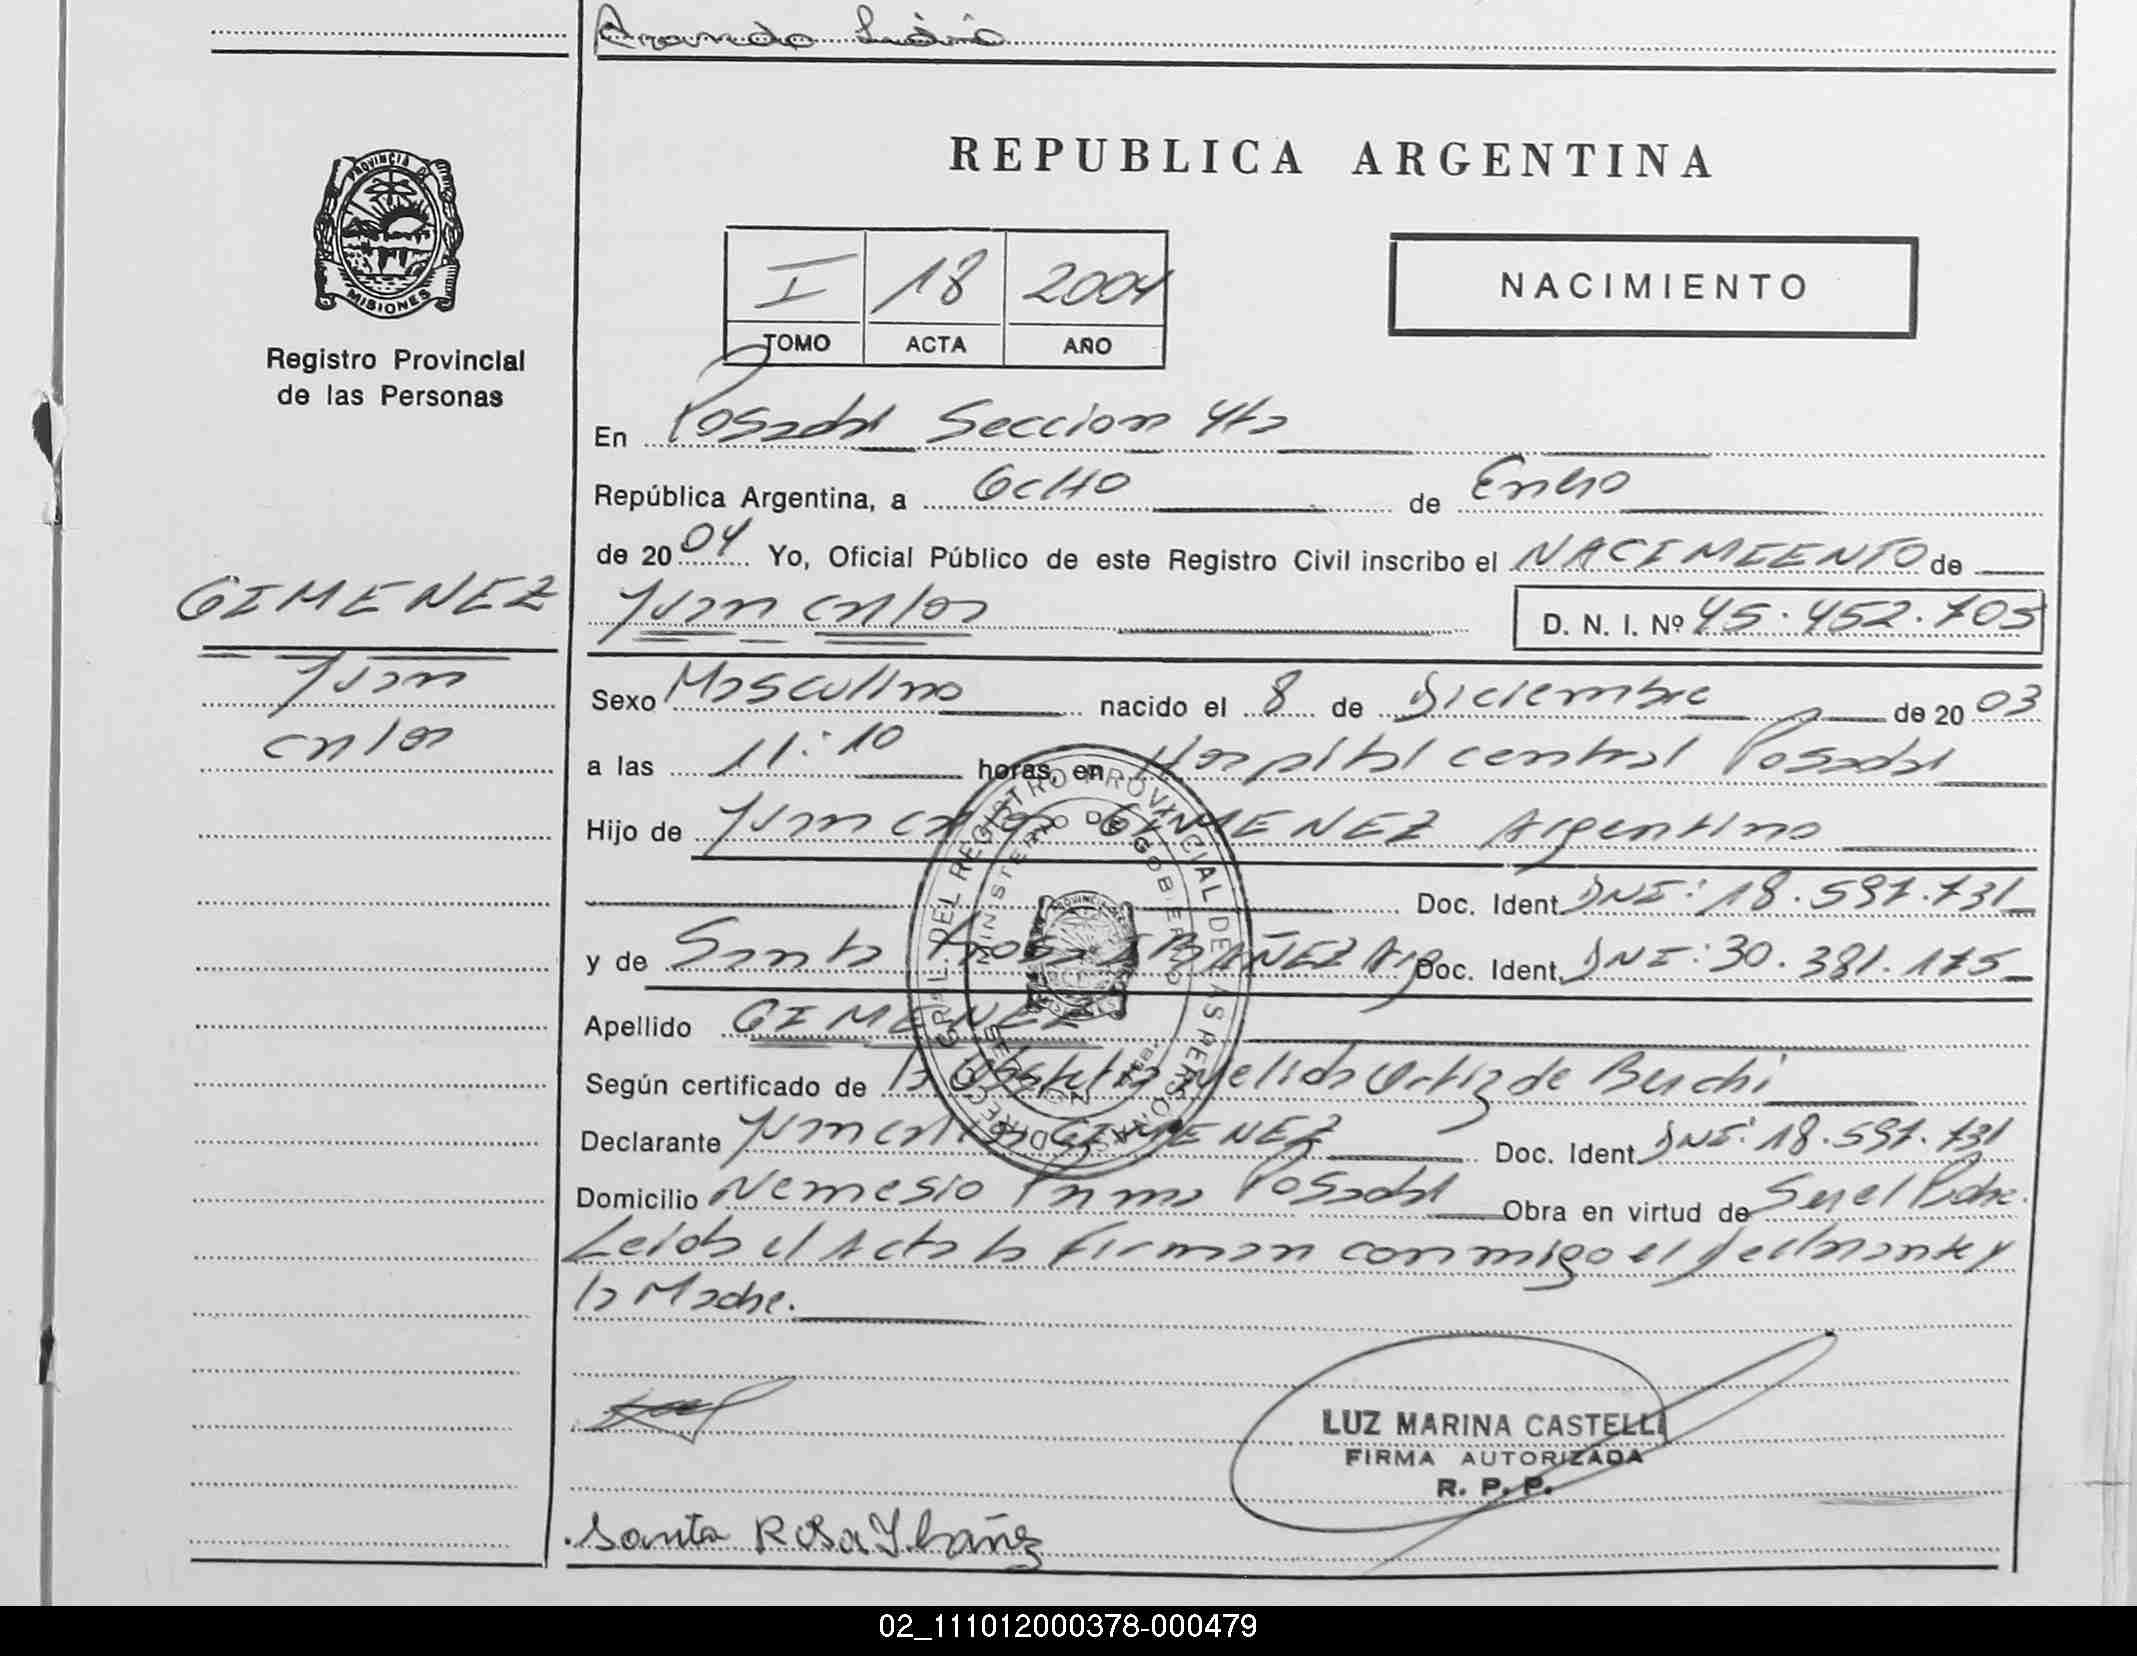 Lidia
REPUBLICA ARGENTINA
PROVINCIA DE
MISIONES
Registro Provincial
de las Personas
I 18 2004
TOMO ACTA AÑO
NACIMIENTO
En Posadas Seccion 4ta
República Argentina, a OcHo de Enero
de 2004 Yo, Oficial Público de este Registro Civil inscribo el NACIMIENTO de
GIMENEZ
Juan
Carlos
Juan Carlos D. N. I. Nº 45.452.705
Sexo Masculino nacido el 8 de Diciembre de 2003
a las 11:10 horas, en Hospital central Posadas
Hijo de Juan Carlos GIMENEZ Argentino
Doc. Ident. DNI: 18.597.731
y de Santa Rosa IBAÑEZ Arg Doc. Ident. DNI: 30.381.175
Apellido GIMENEZ
Según certificado de la Obstetra Nelida Ortiz de Berchi
Declarante Juan Carlos GIMENEZ Doc. Ident. DNI: 18.597.731
Domicilio Nemesio Parma Posadas Obra en virtud de Ser el Padre.
Leida el Acta la firman conmigo el declarante y
la Madre.
DIRECC. GRAL. DEL REGISTRO PROVINCIAL DE LAS PERSONAS
MINISTERIO DE GOBIERNO
LUZ MARINA CASTELLI
FIRMA AUTORIZADA
R. P. P.
Santa Rosa Ibañez
02_111012000378-000479